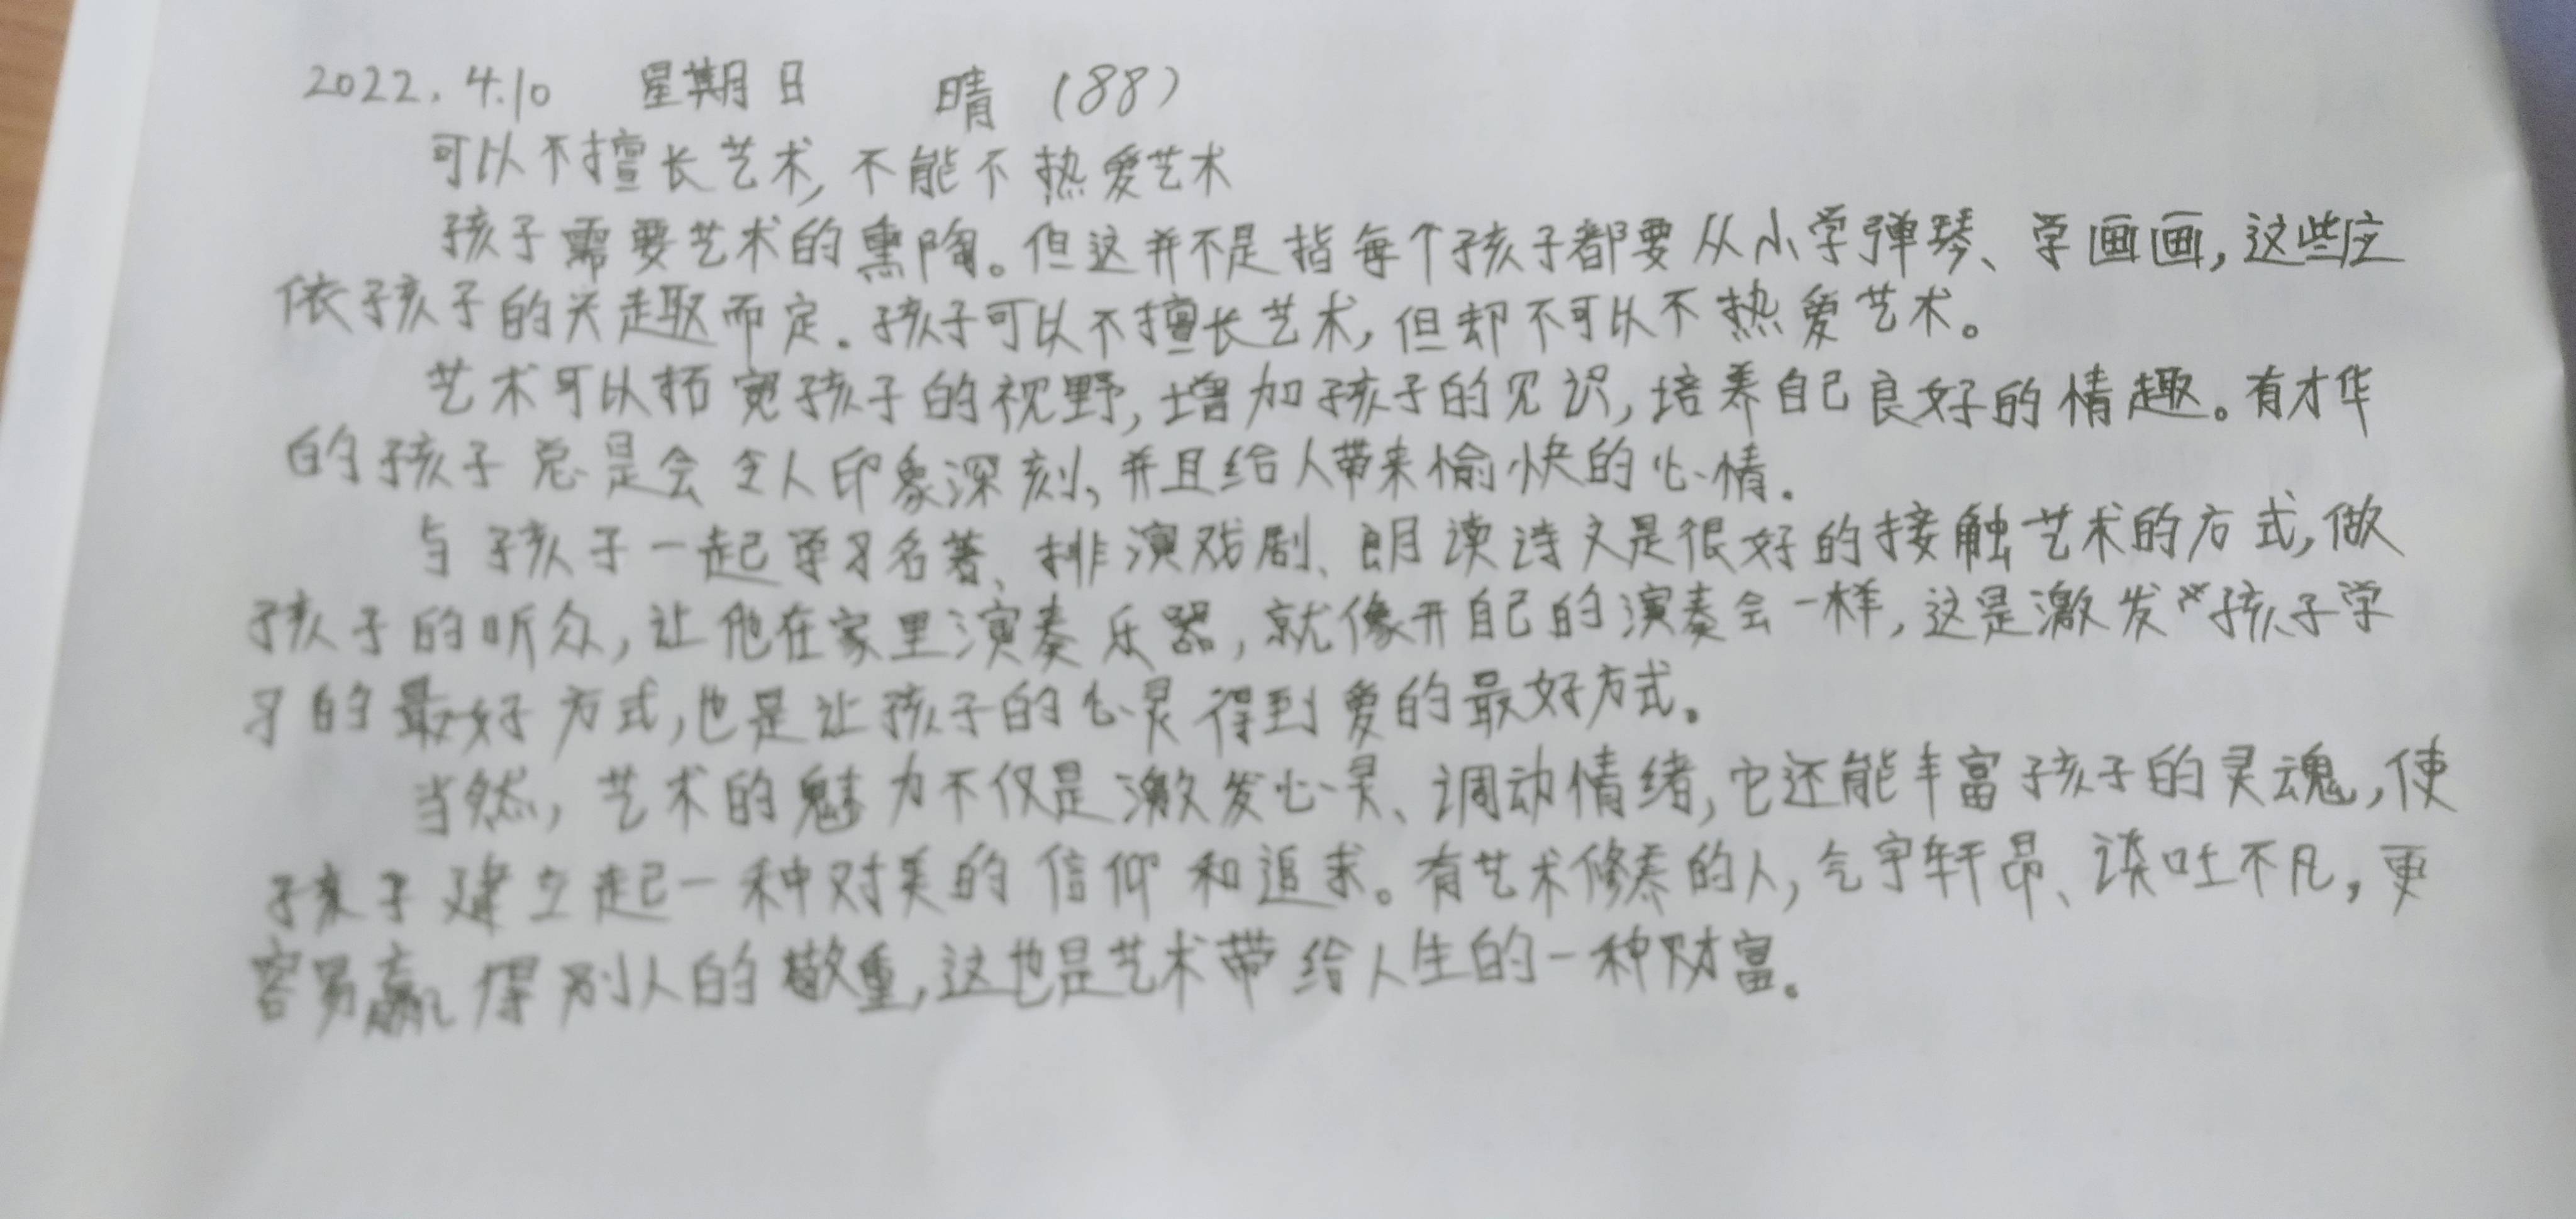 2022.4.10 星期日 晴 (88)
可以不擅长艺术,不能不热爱艺术
孩子需要艺术的熏陶。但这并不是指每个孩子都要从小学弹琴、学画画,这些应
依孩子的兴趣而定.孩子可以不擅长艺术,但却不可以不热爱艺术。
艺术可以拓宽孩子的视野,增加孩子的见识,培养自己良好的情趣。有才华
的孩子总是会令人印象深刻,并且给人带来愉快的心情.
与孩子一起学习名著、排演戏剧、朗读诗文是很好的接触艺术的方式,做
孩子的听众,让他在家里演奏乐器,就像开自己的演奏会一样,这是激发孩子学
习的最好方式,也是让孩子的心灵得到爱的最好方式。
当然,艺术的魅力不仅是激发心灵、调动情绪,它还能丰富孩子的灵魂,使
孩子建立起一种对美的信仰和追求。有艺术修养的人,气宇轩昂、谈吐不凡,更
容易赢得别人的敬重,这也是艺术带给人生的一种财富。